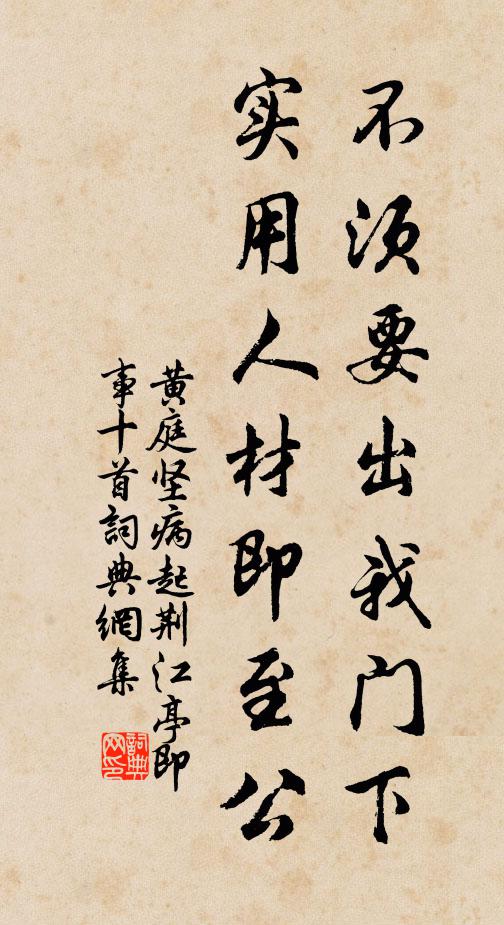 不须要出我门下
实用人材即至公
黄庭坚病起荆江亭即
事十首詞典網集
詞典
网印